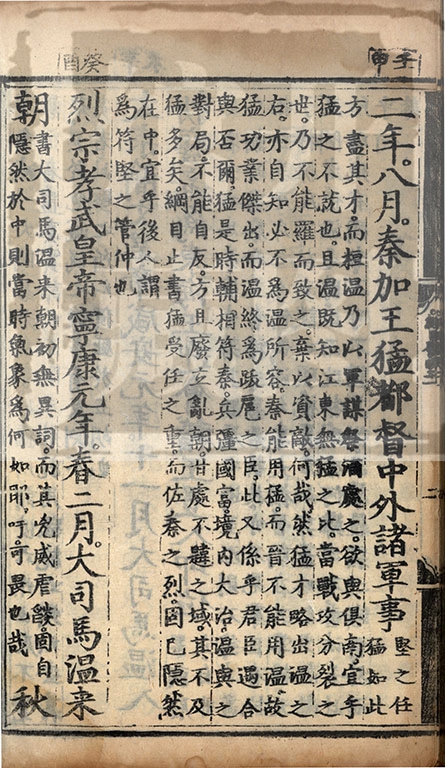 壬申
癸酉
二年。八月。秦加王猛都督中外諸軍事
堅之任
猛如此
方盡其才。而桓溫乃以軍謀祭酒處之。欲與俱南。宜乎
猛之不就也。且溫既知江東無猛之比。當戰攻分裂之
世。乃不能羅而致之。棄以資敵。何哉。然猛才略出溫之
右。亦自知必不爲溫所容。秦能用猛。而晉不能用溫。故
猛功業傑出。而溫終爲跋扈之臣。此又係乎君臣遇合
與否爾。猛是時輔相符秦。兵彊國富。境內大治。溫與之
對局。不能自反。方且廢立亂朝。甘處不韙之域。其不及
猛多矣。綱目止書猛受任之重。而佐秦之烈。固已隱然
在中。宜乎後人謂
爲符堅之管仲也
烈宗孝武皇帝寧康元年。春二月。大司馬溫來
朝
書大司馬溫來朝初無異詞。而其兇威虐燄固自
隱然於中則當時氣象爲何如耶。吁可畏也哉
秋
二